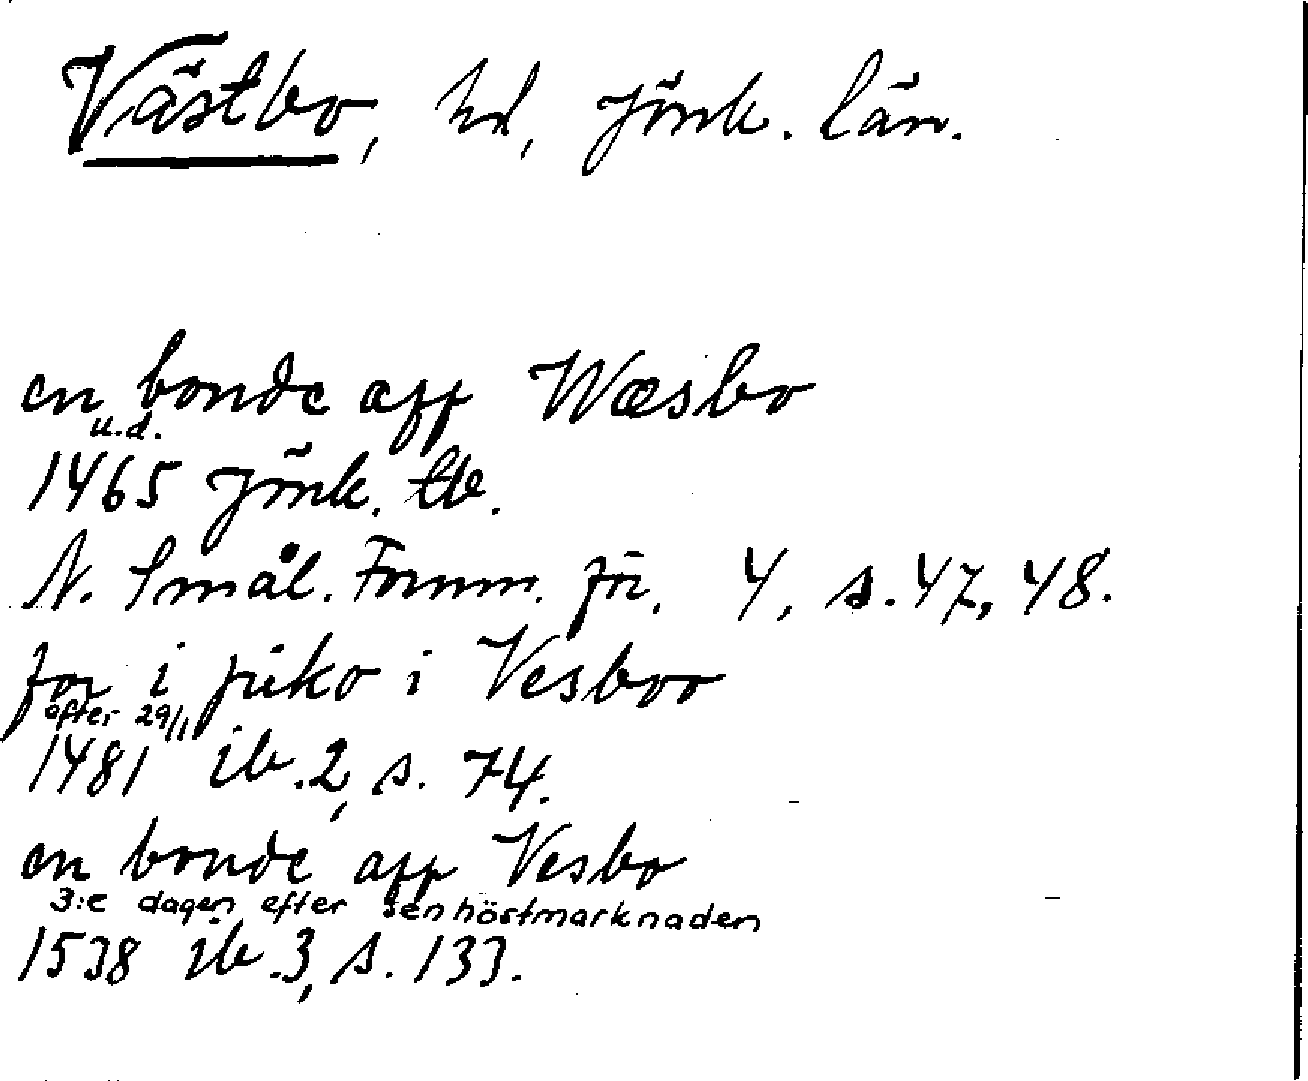 Västbo, hd, Jönk. län.
en bonde aff Wæsbo
u.d.
1465 Jönk. tb.
N. Smål. Fornm. för. 4, s. 47, 48.
for i fiiko i Vesboo
efter 29/1
1481 ib. 2, s. 74.
en bonde aff Vesbo
3:e dagen efter senhöstmarknaden
1538 ib. 3, s. 133.